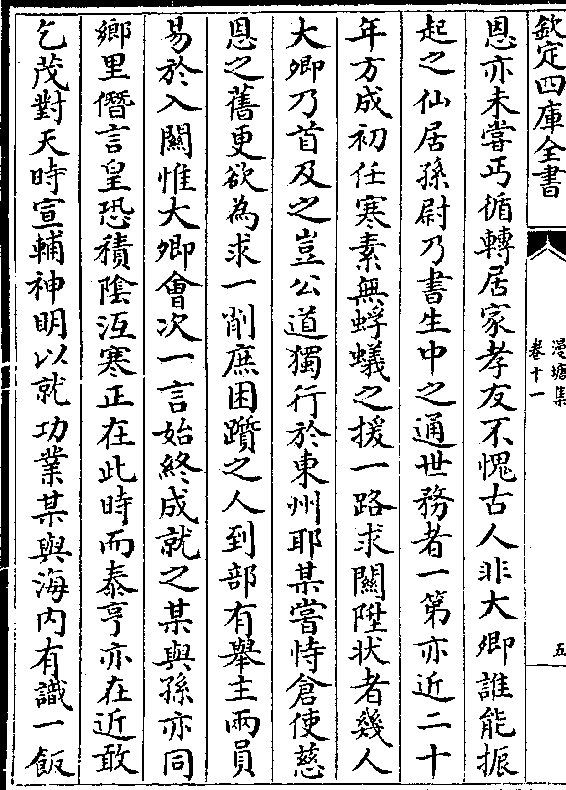 欽定四庫全書
漫塘集
卷十一
五
恩亦未嘗丐循轉居家孝友不愧古人非大卿誰能振
起之仙居孫尉乃書生中之通世務者一第亦近二十
年方成初任寒素無蜉蟻之援一路求關陞状者幾人
大卿乃首及之豈公道獨行於東州耶某嘗恃倉使慈
恩之舊更欲為求一削庶困躓之人到部有舉主兩員
易於入闗惟大卿會次一言始終成就之某與孫亦同
鄉里僭言皇恐積陰沍寒正在此時而泰亨亦在近敢
乞茂對天時宣輔神明以就功業某與海内有識一飯